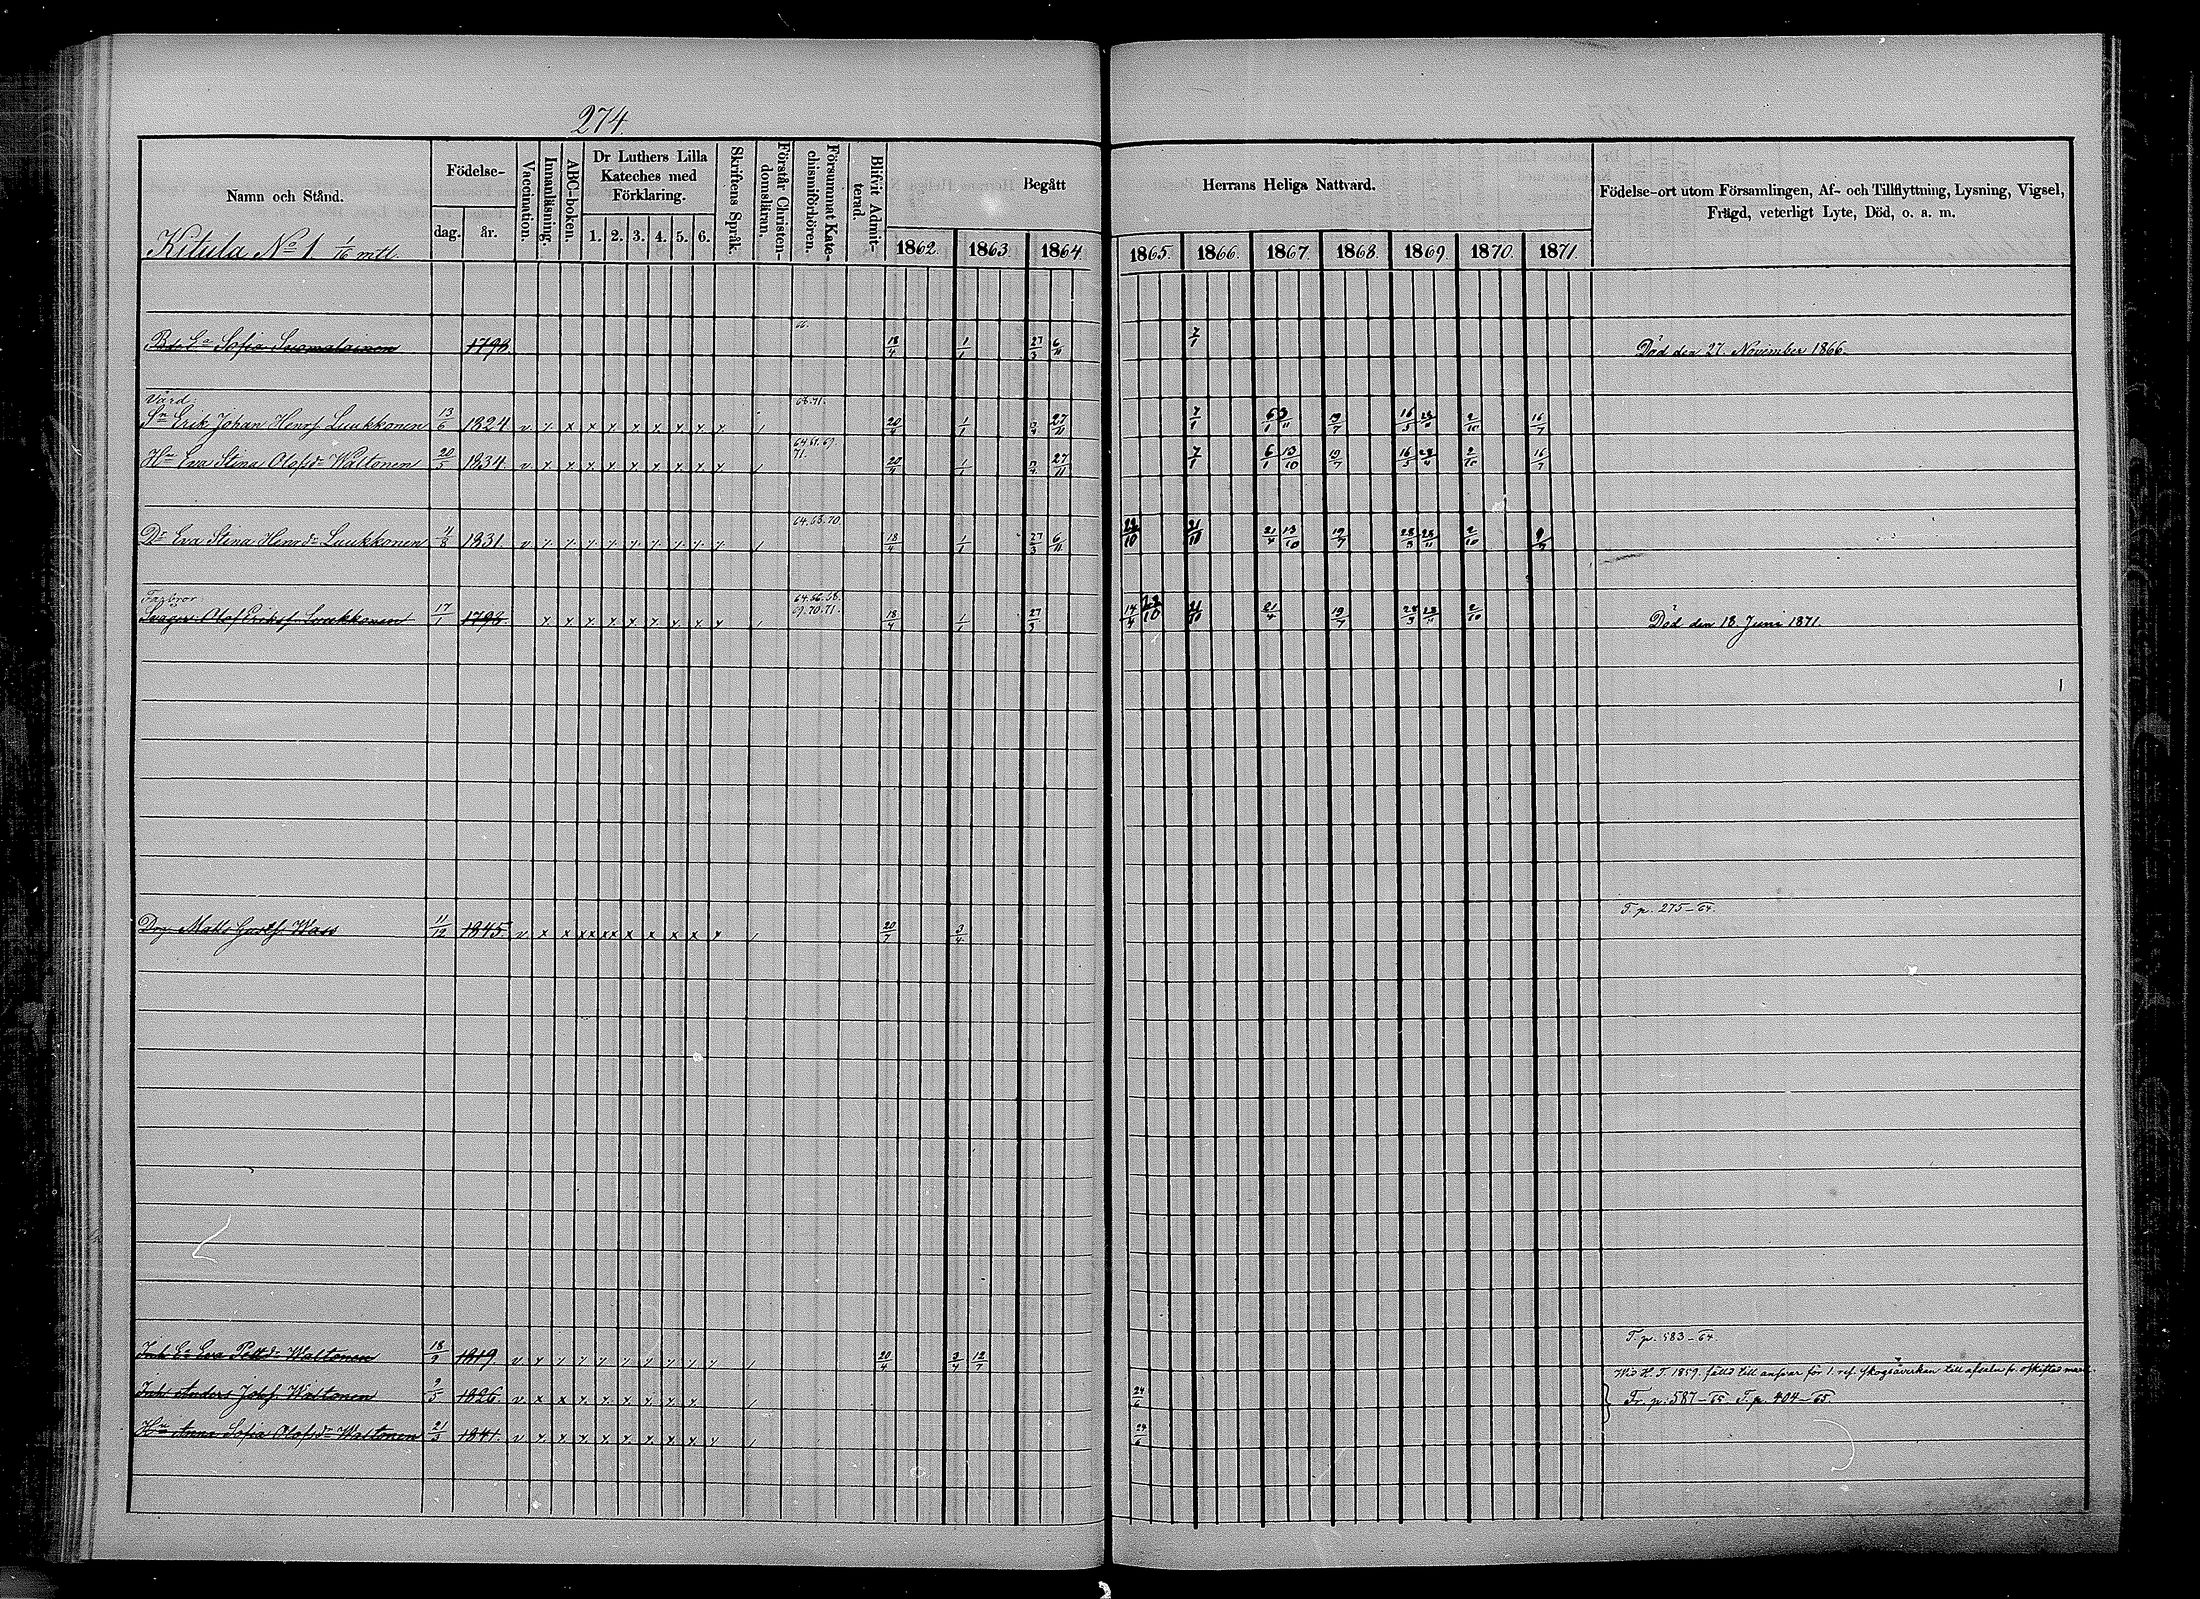 274.
Namn och Stånd.
Födelse-
dag. år.
Vaccination.
Innanläsning.
ABC-boken.
Dr Luthers Lilla
Kateches med
Förklaring.
1. 2. 3. 4. 5. 6.
Skriftens Språk.
Förstår Christen-
domsläran.
Försummat Kate-
chismiförhören.
Blifvit Admit-
terad.
Begått Herrans Heliga Nattvard.
1862. 1863. 1864. 1865. 1866. 1867. 1868. 1869. 1870. 1871.
Födelse-ort utom Församlingen, Af- och Tillflyttning, Lysning, Vigsel,
Frägd, veterligt Lyte, Död, o. a. m.
Kitula No 1 1/16 mtl.
66.
Sofia Suomalainen 1798. 18/4 1/1 27/3 6/11 7/1 Död den 27. November 1866.
Värd. 68.71.
Sn Erik Johan Henrs. Luukkonen 13/6 1824 v x x x x x x x x x / 20/4 1/1 27/11 7/1 19/7 16/5 2/10 16/7
64.65.69.
71.
Hu Eva Stina Olofsdr Waltonen 20/5 1834 v x x x x x x x x x / 20/4 1/1 27/11 7/1 6/1 13/10 19/7 16/5 2/10 16/7
64.68.70.
Dr Eva Stina Henrdr Luukkonen 4/8 1831 v x x x x x x x x x / 18/4 1/1 27/3 6/11 22/10 21/10 21/4 13/10 19/7 28/3 28/11 2/10 9/7
Farbror. 64.66.68.
69.70.71.
Svåger Olof Eriks. Luukkonen 17/1 1798 x x x x x x x x x / 18/4 1/1 27/3 14/4 22/10 21/10 21/4 19/7 28/3 28/11 2/10 Död den 18. Juni 1871.
T. p. 275-64.
Drg Matts Gustfs. Wass 11/12 1845. v x x xx xx x x x x x / 20/7 3/4
T. p. 583-64.
Inh. Ea Eva Pettdr Waltonen 18/9 1819. v x x x x x x x x x / 20/4 3/4 12/7
Wid H. T. 1859. fälld till ansvar för 1. ref. skogsåverkan till afsalu på oskiftad mark.
Inh Anders Johsf. Waltonen 9/5 1826. v x x x x x x x x / 24/6 Fr. p. 587-65. T. p. 404-65.
Hu Anna Sofia Olofsdr Waltonen 21/3 1841. v x x x x x x x x x / 24/6